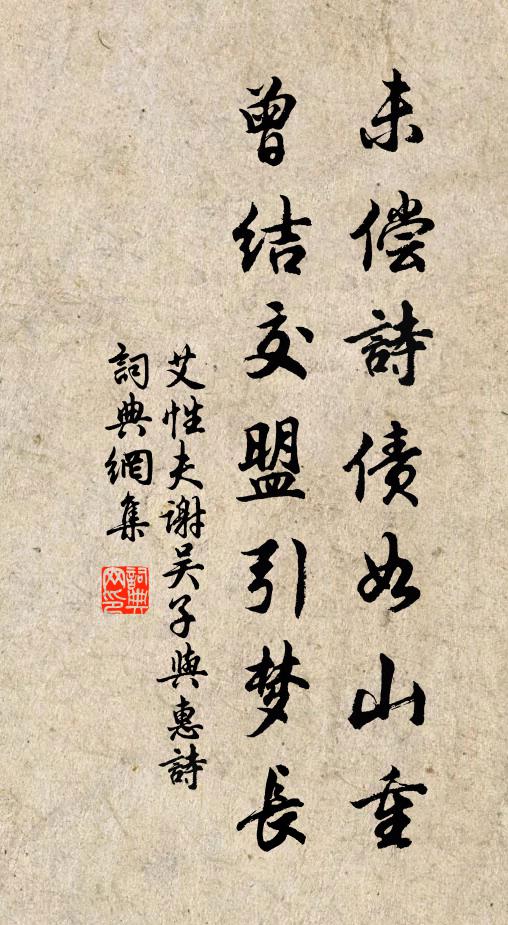 未偿詩债如山重
曾结交盟引梦長
艾性夫谢吴子與惠詩
詞典網集
詞典网印